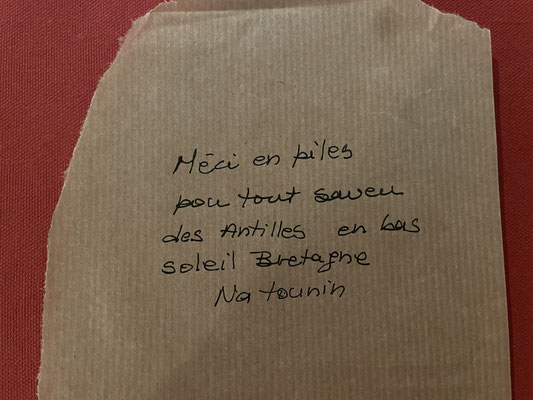 Méci en piles
pou tout saveu
des Antilles en bas
soleil Bretagne
Na tounin